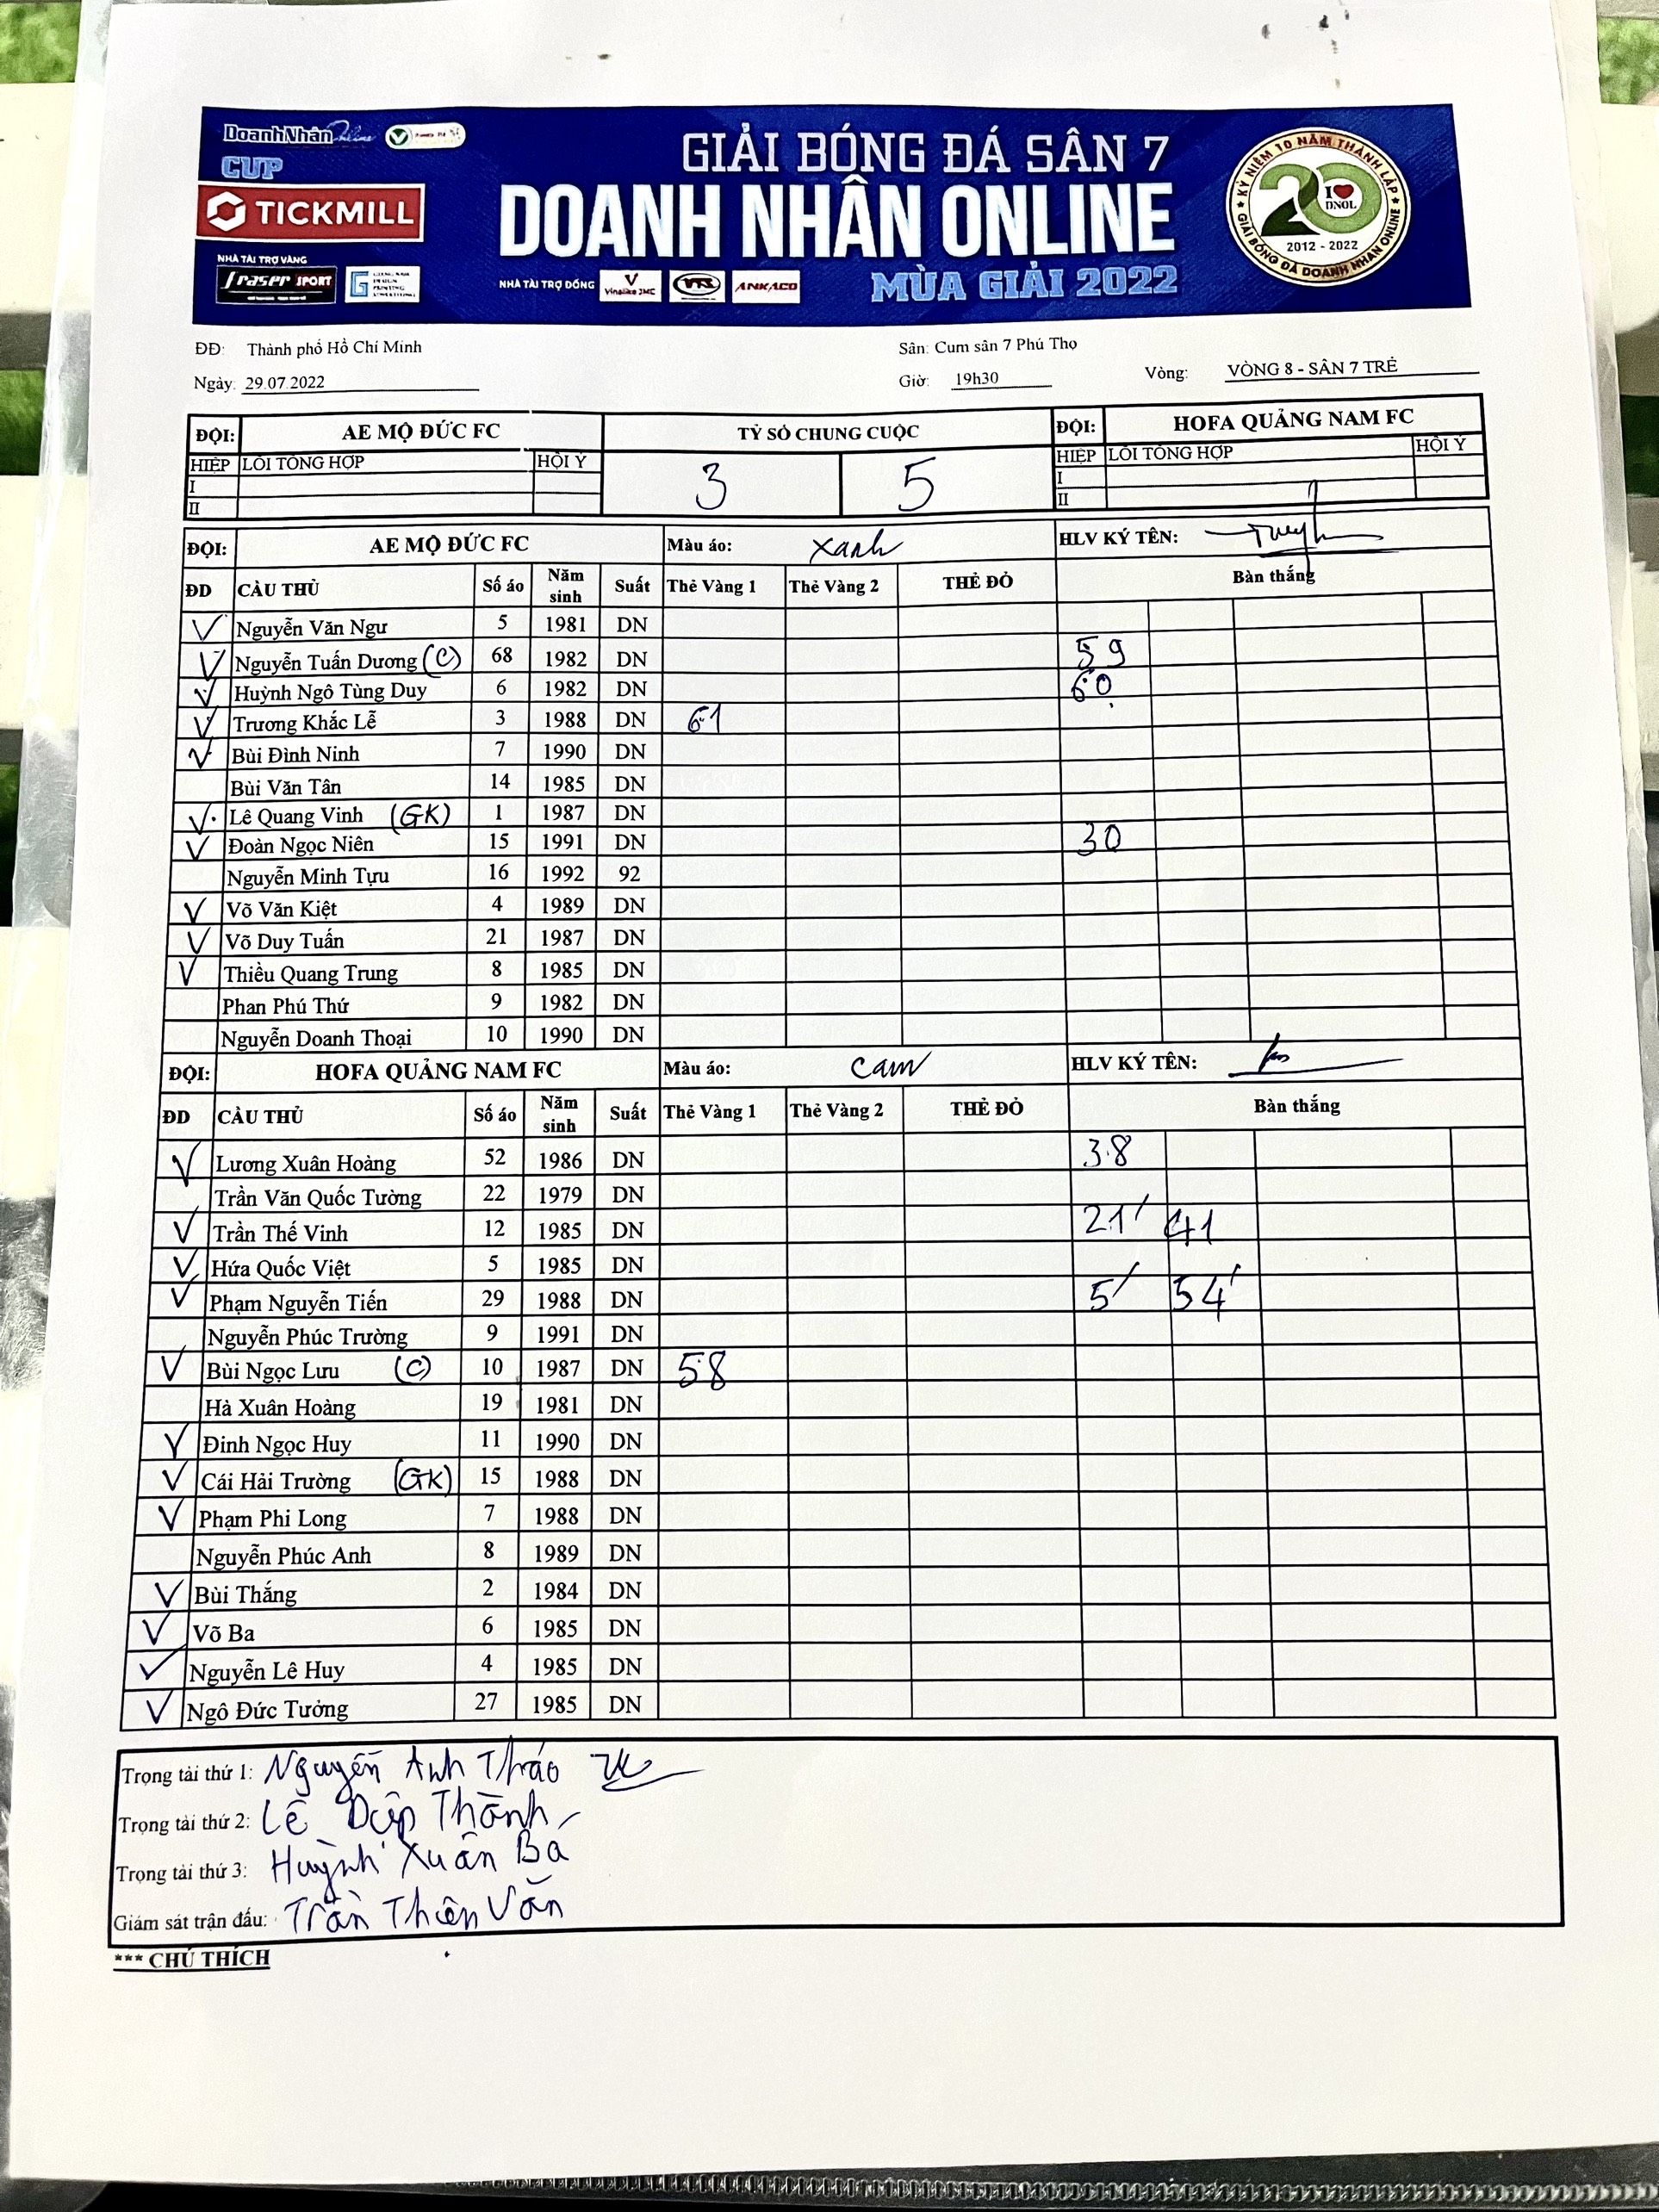 DoanhNhân Online
CUP
TICKMILL
NHÀ TÀI TRỢ VÀNG
fraser SPORT
GIẢI BÓNG ĐÁ SÂN 7
DOANH NHÂN ONLINE
NHÀ TÀI TRỢ ĐỒNG Vinalike JMC ANKACO MÙA GIẢI 2022
KỶ NIỆM 10 NĂM THÀNH LẬP
I ❤ DNOL
2012 - 2022
GIẢI BÓNG ĐÁ DOANH NHÂN ONLINE
ĐĐ: Thành phố Hồ Chí Minh Sân: Cum sân 7 Phú Thọ
Ngày: 29.07.2022 Giờ: 19h30 Vòng: VÒNG 8 - SÂN 7 TRẺ
ĐỘI: AE MỘ ĐỨC FC TỶ SỐ CHUNG CUỘC ĐỘI: HOFA QUẢNG NAM FC
HIỆP LỖI TỔNG HỢP HỘI Ý 3 5 HIỆP LỖI TỔNG HỢP HỘI Ý
I I
II II
ĐỘI: AE MỘ ĐỨC FC Màu áo: xanh HLV KÝ TÊN:
ĐD CẦU THỦ Số áo Năm sinh Suất Thẻ Vàng 1 Thẻ Vàng 2 THẺ ĐỎ Bàn thắng
V Nguyễn Văn Ngư 5 1981 DN
V Nguyễn Tuấn Dương (C) 68 1982 DN 59
V Huỳnh Ngô Tùng Duy 6 1982 DN 60
V Trương Khắc Lễ 3 1988 DN 61
V Bùi Đình Ninh 7 1990 DN
Bùi Văn Tân 14 1985 DN
V Lê Quang Vinh (GK) 1 1987 DN
V Đoàn Ngọc Niên 15 1991 DN 30
Nguyễn Minh Tựu 16 1992 92
V Võ Văn Kiệt 4 1989 DN
V Võ Duy Tuấn 21 1987 DN
V Thiều Quang Trung 8 1985 DN
Phan Phú Thứ 9 1982 DN
Nguyễn Doanh Thoại 10 1990 DN
ĐỘI: HOFA QUẢNG NAM FC Màu áo: cam HLV KÝ TÊN:
ĐD CẦU THỦ Số áo Năm sinh Suất Thẻ Vàng 1 Thẻ Vàng 2 THẺ ĐỎ Bàn thắng
V Lương Xuân Hoàng 52 1986 DN 38
Trần Văn Quốc Tường 22 1979 DN
V Trần Thế Vinh 12 1985 DN 21' 41
V Hứa Quốc Việt 5 1985 DN
V Phạm Nguyễn Tiến 29 1988 DN 5' 54'
Nguyễn Phúc Trường 9 1991 DN
V Bùi Ngọc Lưu (C) 10 1987 DN 58
Hà Xuân Hoàng 19 1981 DN
V Đinh Ngọc Huy 11 1990 DN
V Cái Hải Trường (GK) 15 1988 DN
V Phạm Phi Long 7 1988 DN
Nguyễn Phúc Anh 8 1989 DN
V Bùi Thắng 2 1984 DN
V Võ Ba 6 1985 DN
V Nguyễn Lê Huy 4 1985 DN
V Ngô Đức Tưởng 27 1985 DN
Trọng tài thứ 1: Nguyễn Anh Tháo
Trọng tài thứ 2: Lê Thành
Trọng tài thứ 3: Huỳnh Xuân Ba
Giám sát trận đấu: Trần Thiện Văn
*** CHÚ THÍCH